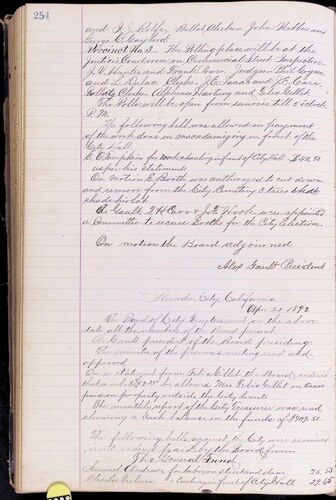 254
and J. J. Rolfe, Ballot Clerks John Webber and
George C. Gaylord
Precinct No. 3. The Polling place will be at the
Justices Court room on Commercial Street Inspectors
J. V. Hunter and Frank Power. Judges Phil Goyne
and L. Dulac Clerks J. E. Isaac and J. E. Carr.
Ballot Clerks Alphonso Hartung and Felix Gillet.
The Polls will be open from sunrise till 5 oclock
P.M.
The following bill was allowed in payment
of the work done in macadamizing in front of the
City Hall.
E. C. Tompkins for work & hauling in front of City Hall $42.50
as per his statement
On Motion B. Booth was authorized to cut down
and remove from the City Cemetery 3 trees that
shade his lot.
A Gault, T. H. Carr & J. E. Hook were appointed
a Committee to secure Booths for the City Election.
On motion the Board adjourned
Alex Gault President
Nevada City California
Apr. 21 1892
The Board of City Trustees met on the above
date all the members of the Board present
A Gault president of the Board presiding.
The minutes of the previous meeting read and
approved
On a statement from Felix Gillet the Board ordered
that a rebate be allowed Mr. Felix Gillet on taxes
paid on property outside the City limits
The monthly report of the City Treasurer was read
showing a Cash balance in the funds of
The following bills against the City were examined
and ordered paid by the Board from
The General Fund
Samuel Andrews for labor on streets and drain
Charles on front of City Hall